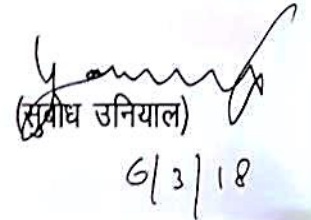 (सुबोध उनियाल)
6/3/18